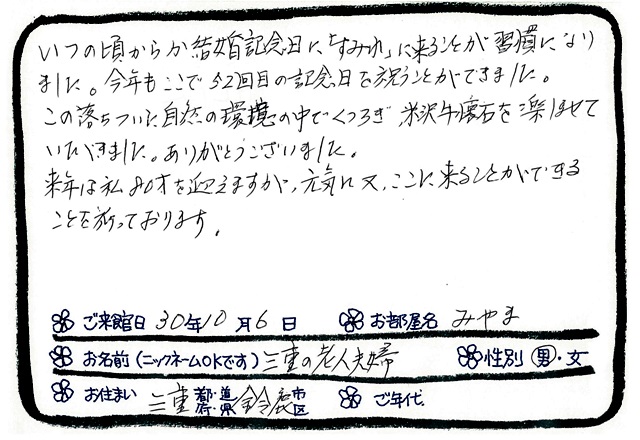 いつの頃からか結婚記念日に「すみれ」に来ることが習慣になり
ました。今年もここで52回目の記念日を祝うことができました。
この落ちついた自然の環境の中でくつろぎ 米沢牛懐石を楽しませて
いただきました。ありがとうございました。
来年は私80才を迎えますが、元気に又、ここに来ることができる
ことを祈っております。
ご来館日 30年10月6日 お部屋名 みやま
お名前(ニックネームOKです) 三重の老人夫婦 性別 男・女
お住まい 三重 都・道・府・県 鈴鹿 市区 ご年代